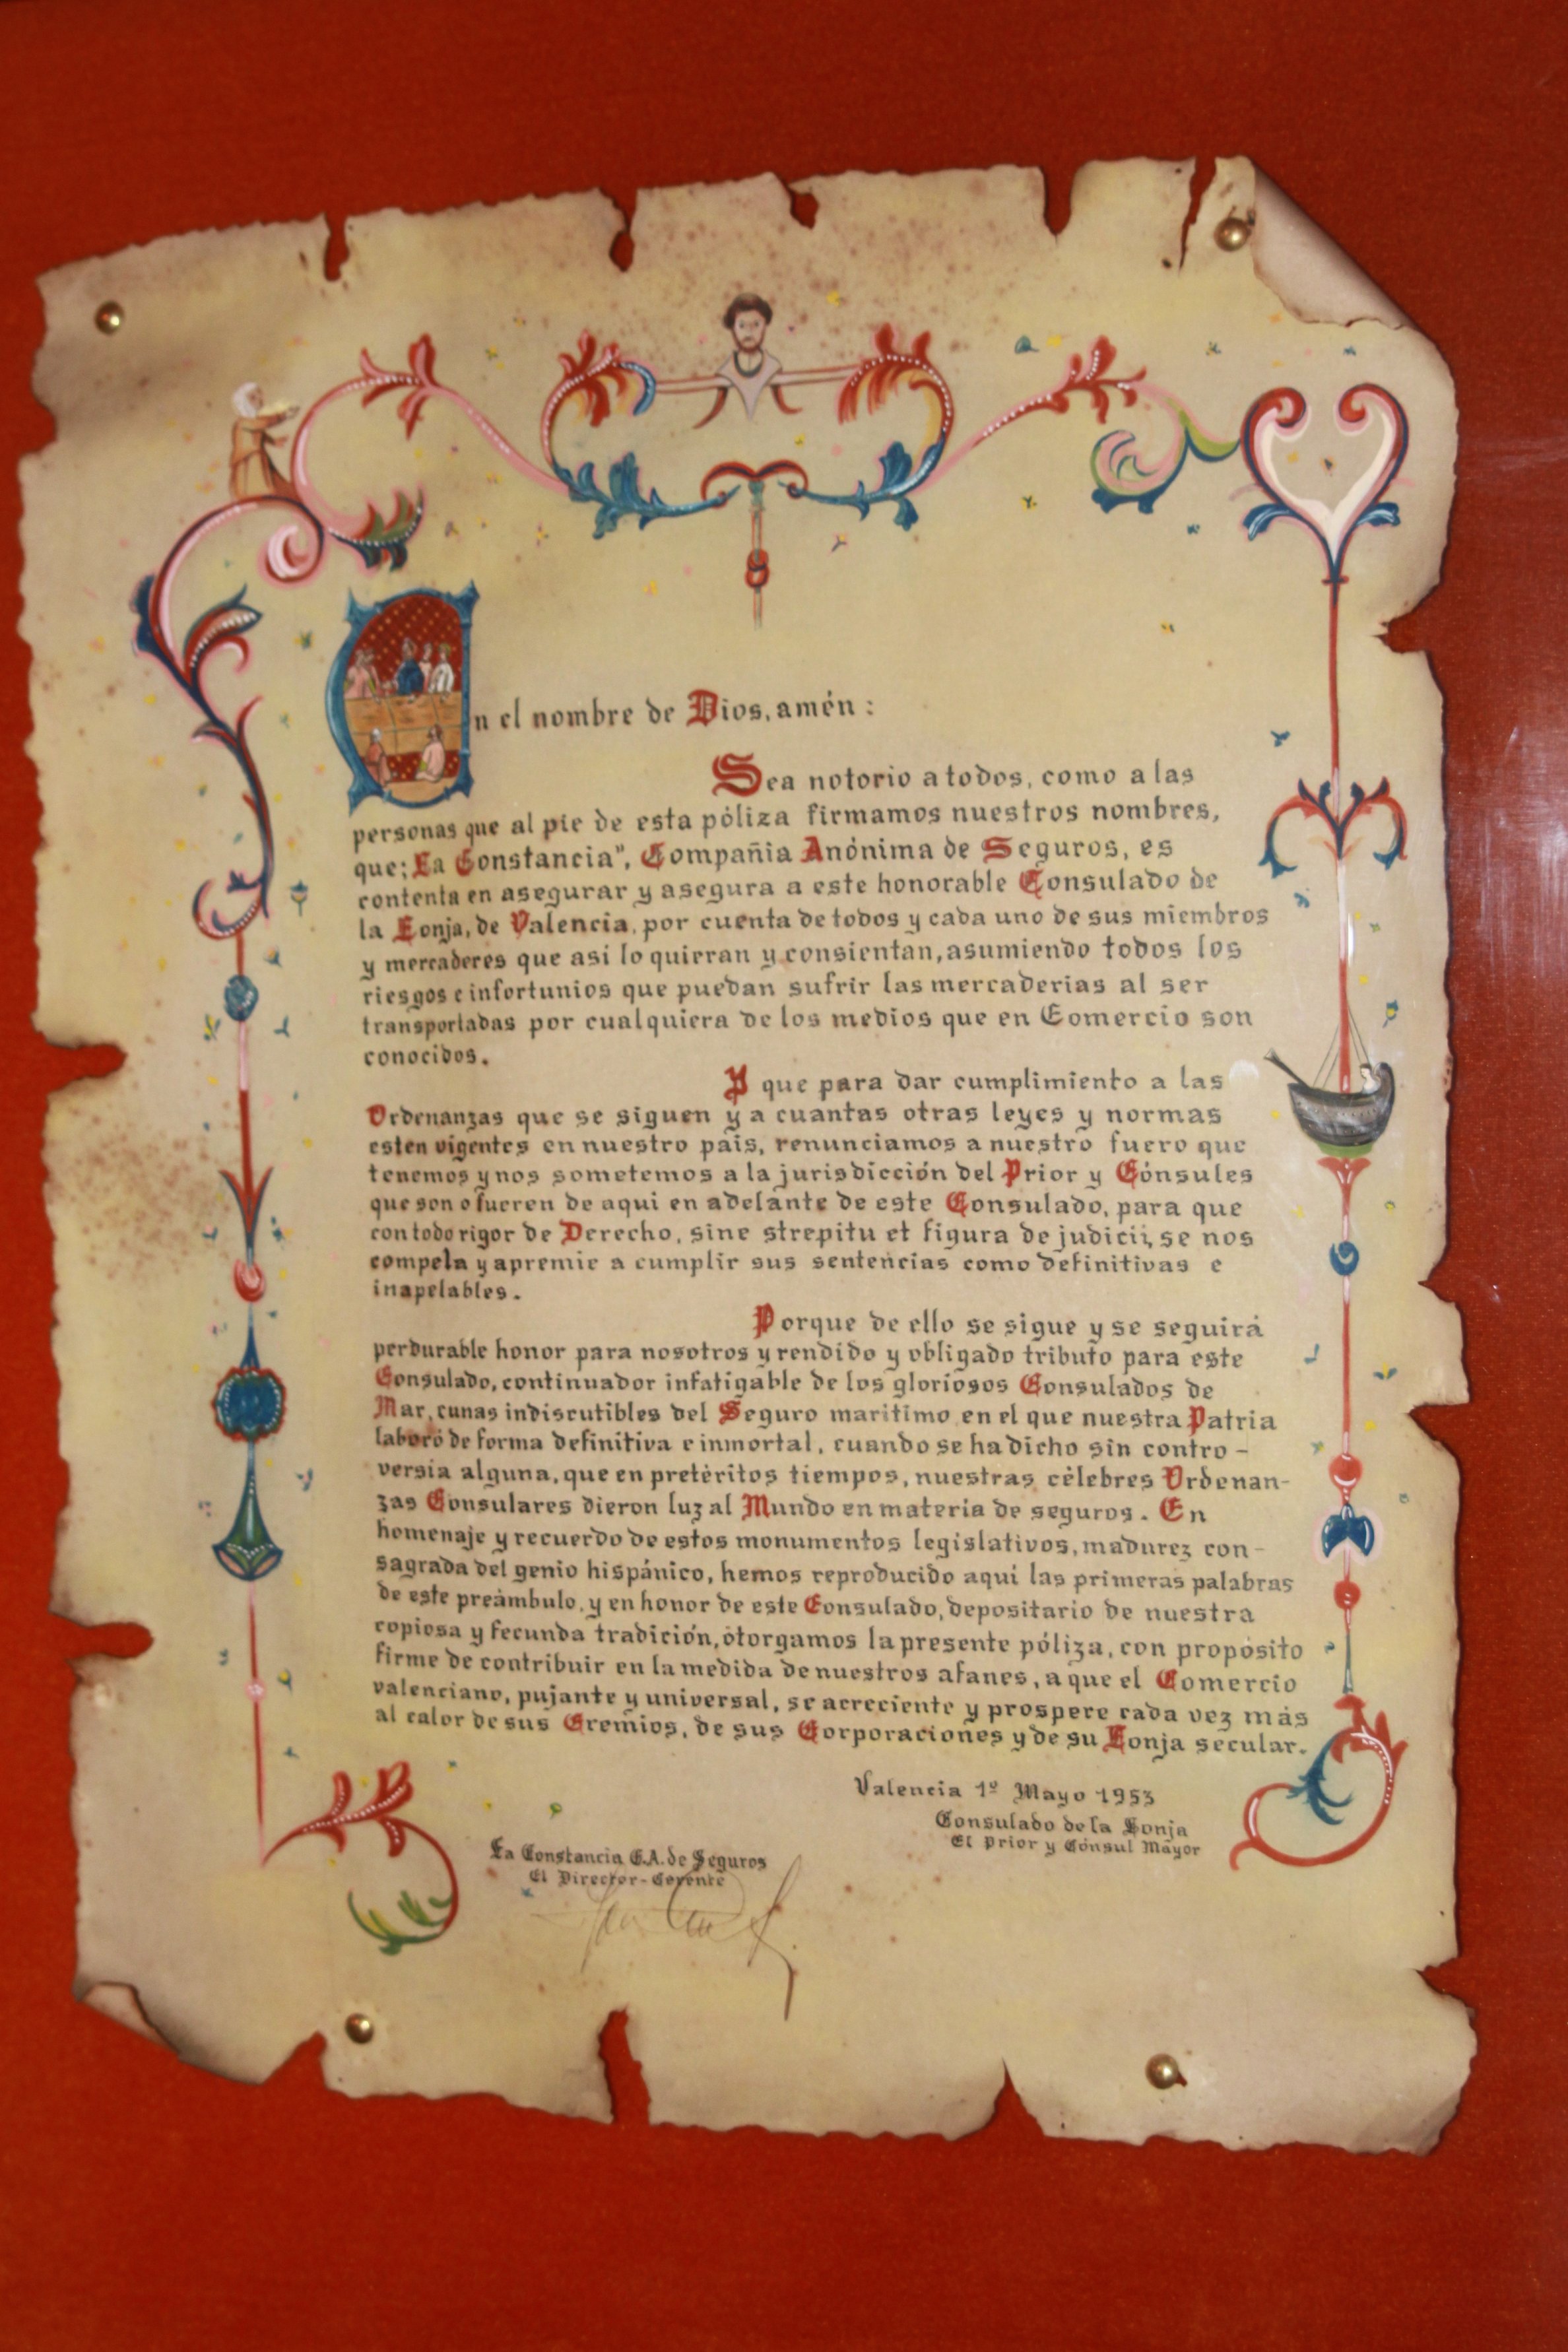 En el nombre de Dios, amén :
Sea notorio a todos, como a las
personas que al pie de esta póliza firmamos nuestros nombres,
que; La Constancia", Compañia Anónima de Seguros, es
contenta en asegurar y asegura a este honorable Consulado de
la Lonja, de Valencia, por cuenta de todos y cada uno de sus miembros
y mercaderes que asi lo quieran y consientan, asumiendo todos los
riesgos e infortunios que puedan sufrir las mercaderias al ser
transportadas por cualquiera de los medios que en Comercio son
conocidos.
Y que para dar cumplimiento a las
Ordenanzas que se siguen y a cuantas otras leyes y normas
esten vigentes en nuestro pais, renunciamos a nuestro fuero que
tenemos y nos sometemos a la jurisdicción del Prior y Cónsules
que son o fueren de aqui en adelante de este Consulado, para que
con todo rigor de Derecho, sine strepitu et figura de judicii, se nos
compela y apremie a cumplir sus sentencias como definitivas e
inapelables.
Porque de ello se sigue y se seguirá
perdurable honor para nosotros y rendido y obligado tributo para este
Consulado, continuador infatigable de los gloriosos Consulados de
Mar, cunas indiscutibles del Seguro maritimo en el que nuestra Patria
laboró de forma definitiva e inmortal, cuando se ha dicho sin contro-
versia alguna, que en pretéritos tiempos, nuestras célebres Ordenan-
zas Consulares dieron luz al Mundo en materia de seguros. En
homenaje y recuerdo de estos monumentos legislativos, madurez con-
sagrada del genio hispánico, hemos reproducido aquí las primeras palabras
de este preámbulo, y en honor de este Consulado, depositario de nuestra
copiosa y fecunda tradición, otorgamos la presente póliza, con propósito
firme de contribuir en la medida de nuestros afanes, a que el Comercio
valenciano, pujante y universal, se acreciente y prospere cada vez más
al calor de sus Gremios, de sus Corporaciones y de su Lonja secular.
Valencia 1º Mayo 1953
Consulado de la Lonja
El Prior y Cónsul Mayor
La Constancia C.A. de Seguros
El Director-Gerente